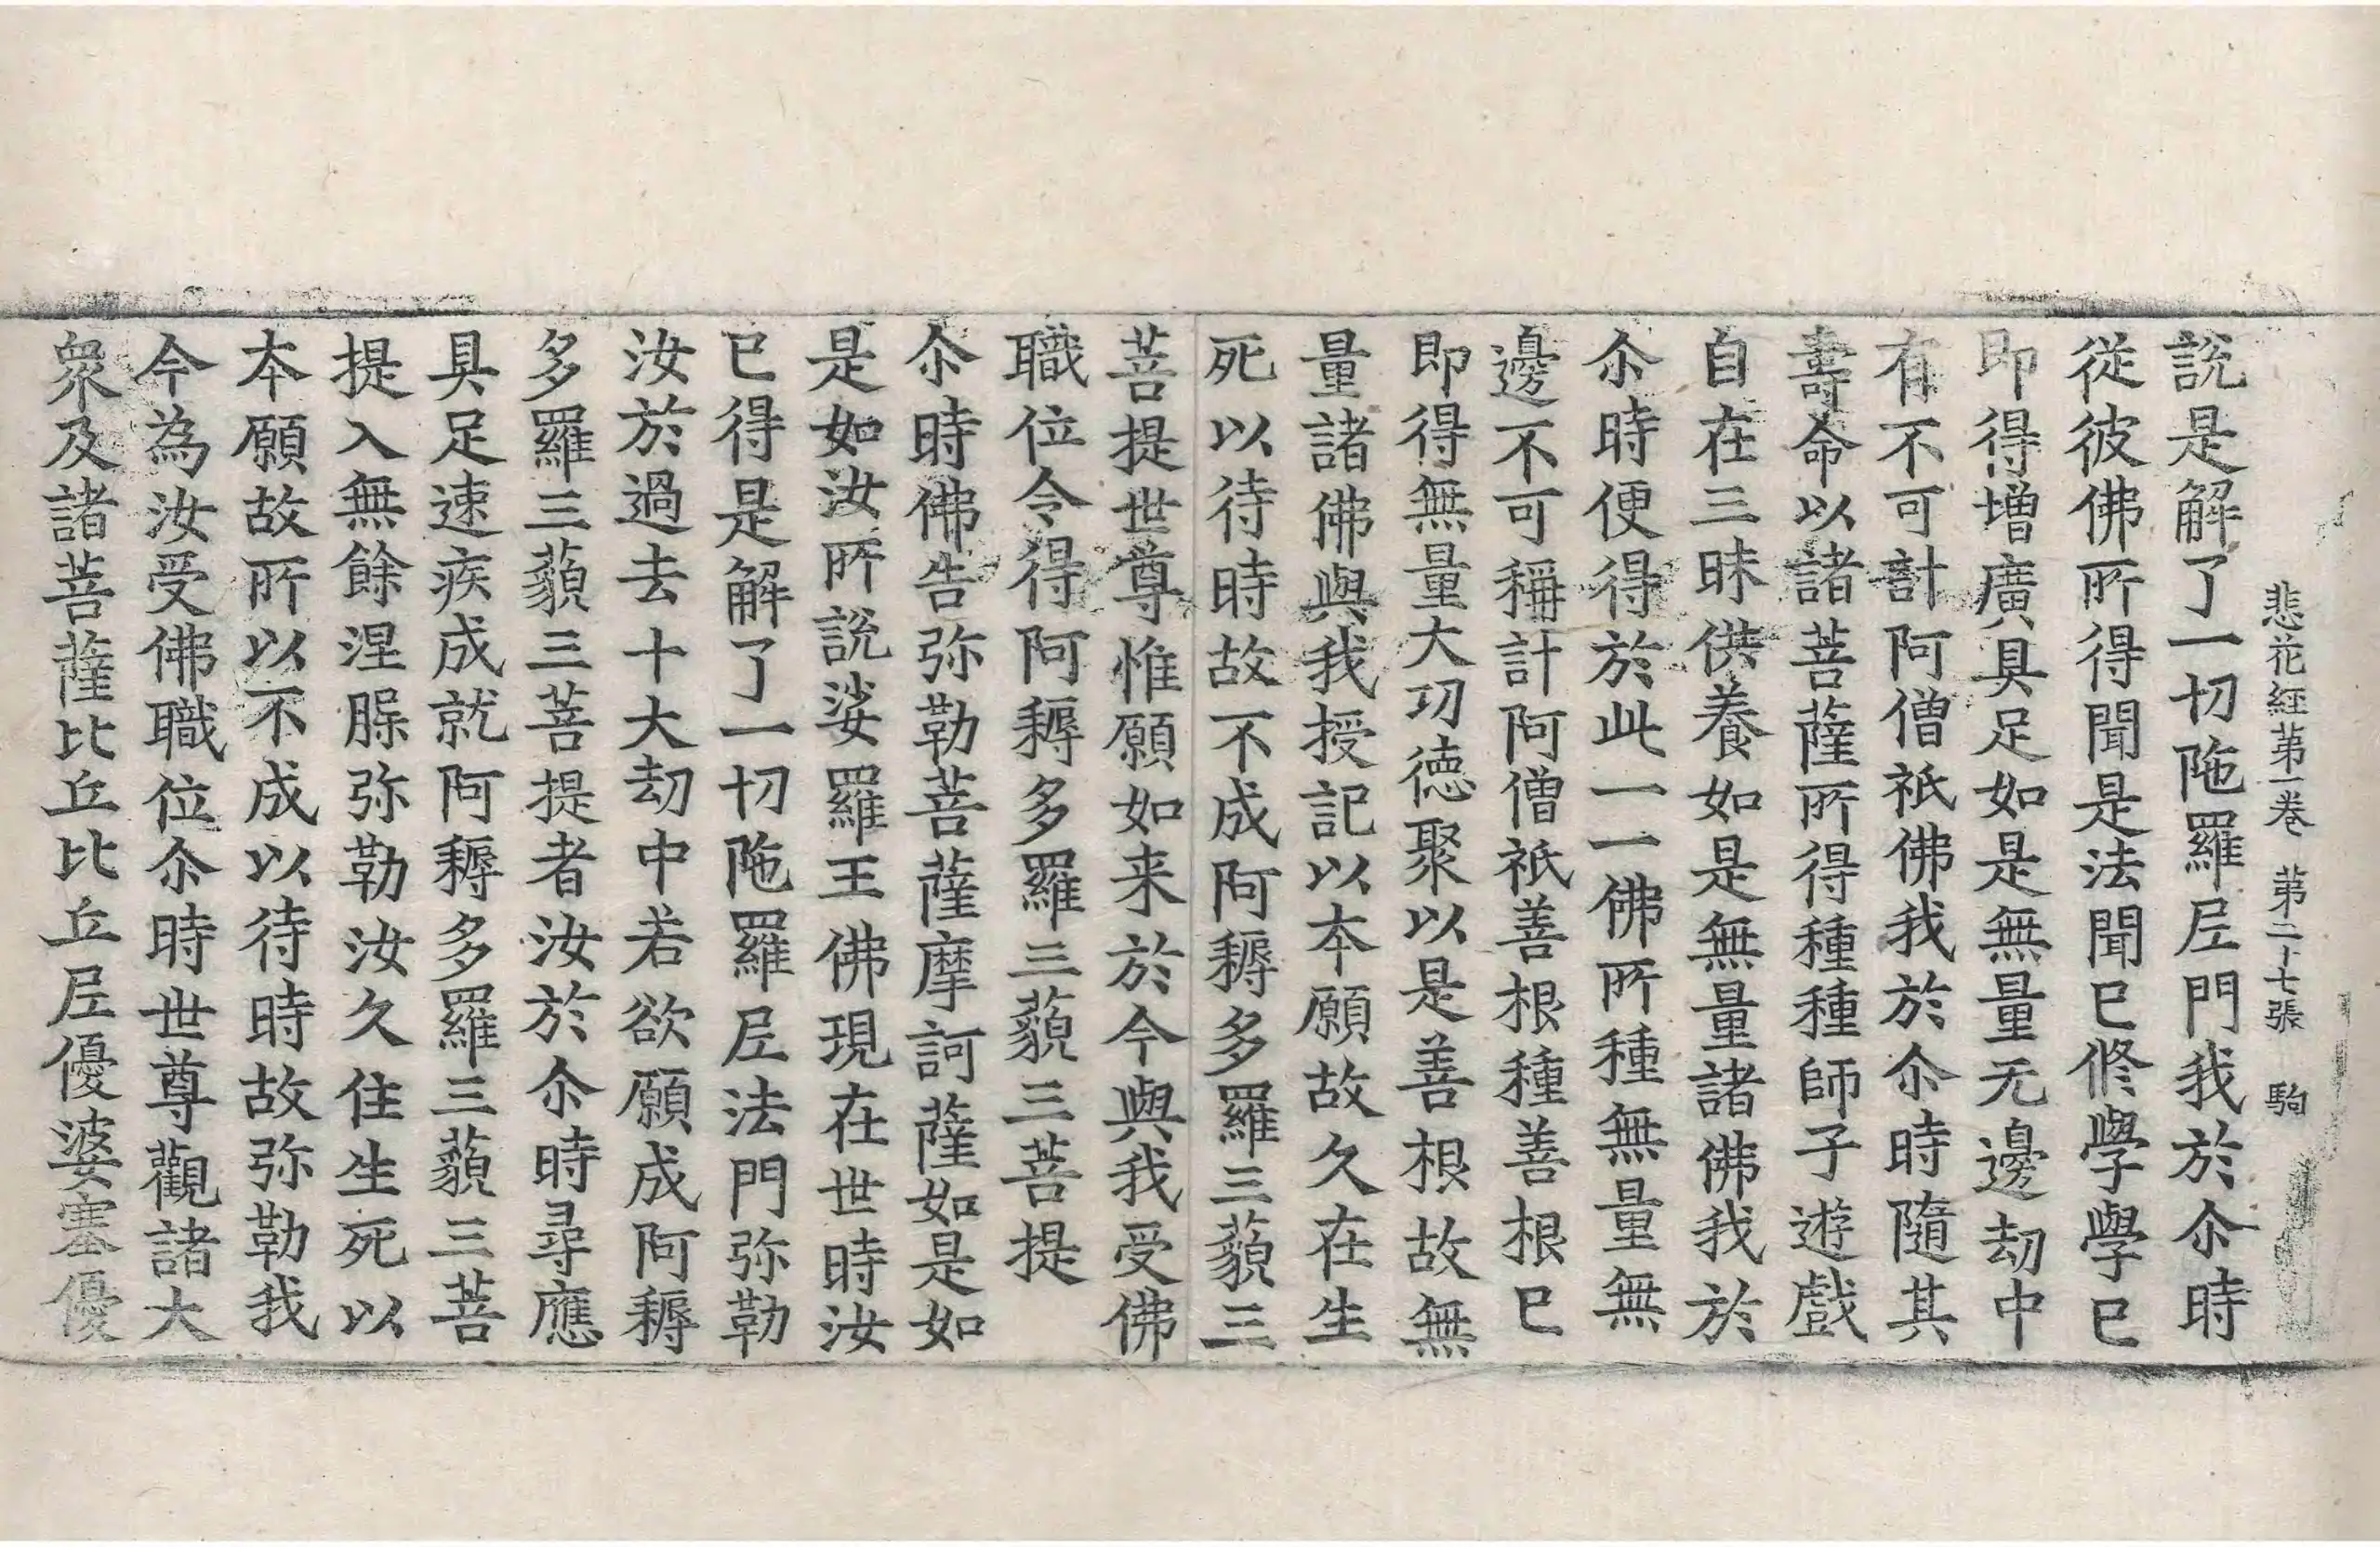 悲花経第一巻　第二十七張　駒
說是解了一切陁羅𡰱門我於尒時
從彼佛所得聞是法聞已修學學已
即得增廣具足如是無量无邊劫中
有不可計阿僧祇佛我於尒時隨其
壽命以諸菩薩所得種種師子遊戲
自在三昧供養如是無量諸佛我於
尒時便得於此一一佛所種無量無
邊不可稱計阿僧祇善根種善根已
即得無量大功德聚以是善根故無
量諸佛與我授記以本願故久在生
死以待時故不成阿耨多羅三藐三
菩提世尊惟願如来於今與我受佛
職位令得阿耨多羅三藐三菩提
尒時佛告弥勒菩薩摩訶薩如是如
是如汝所說娑羅王佛現在世時汝
已得是解了一切陁羅𡰱法門弥勒
汝於過去十大劫中若欲願成阿耨
多羅三藐三菩提者汝於尒時尋應
具足速疾成就阿耨多羅三藐三菩
提入無餘涅槃弥勒汝久住生死以
本願故所以不成以待時故弥勒我
今為汝受佛職位尒時世尊觀諸大
衆及諸菩薩比丘比丘𡰱優婆塞優